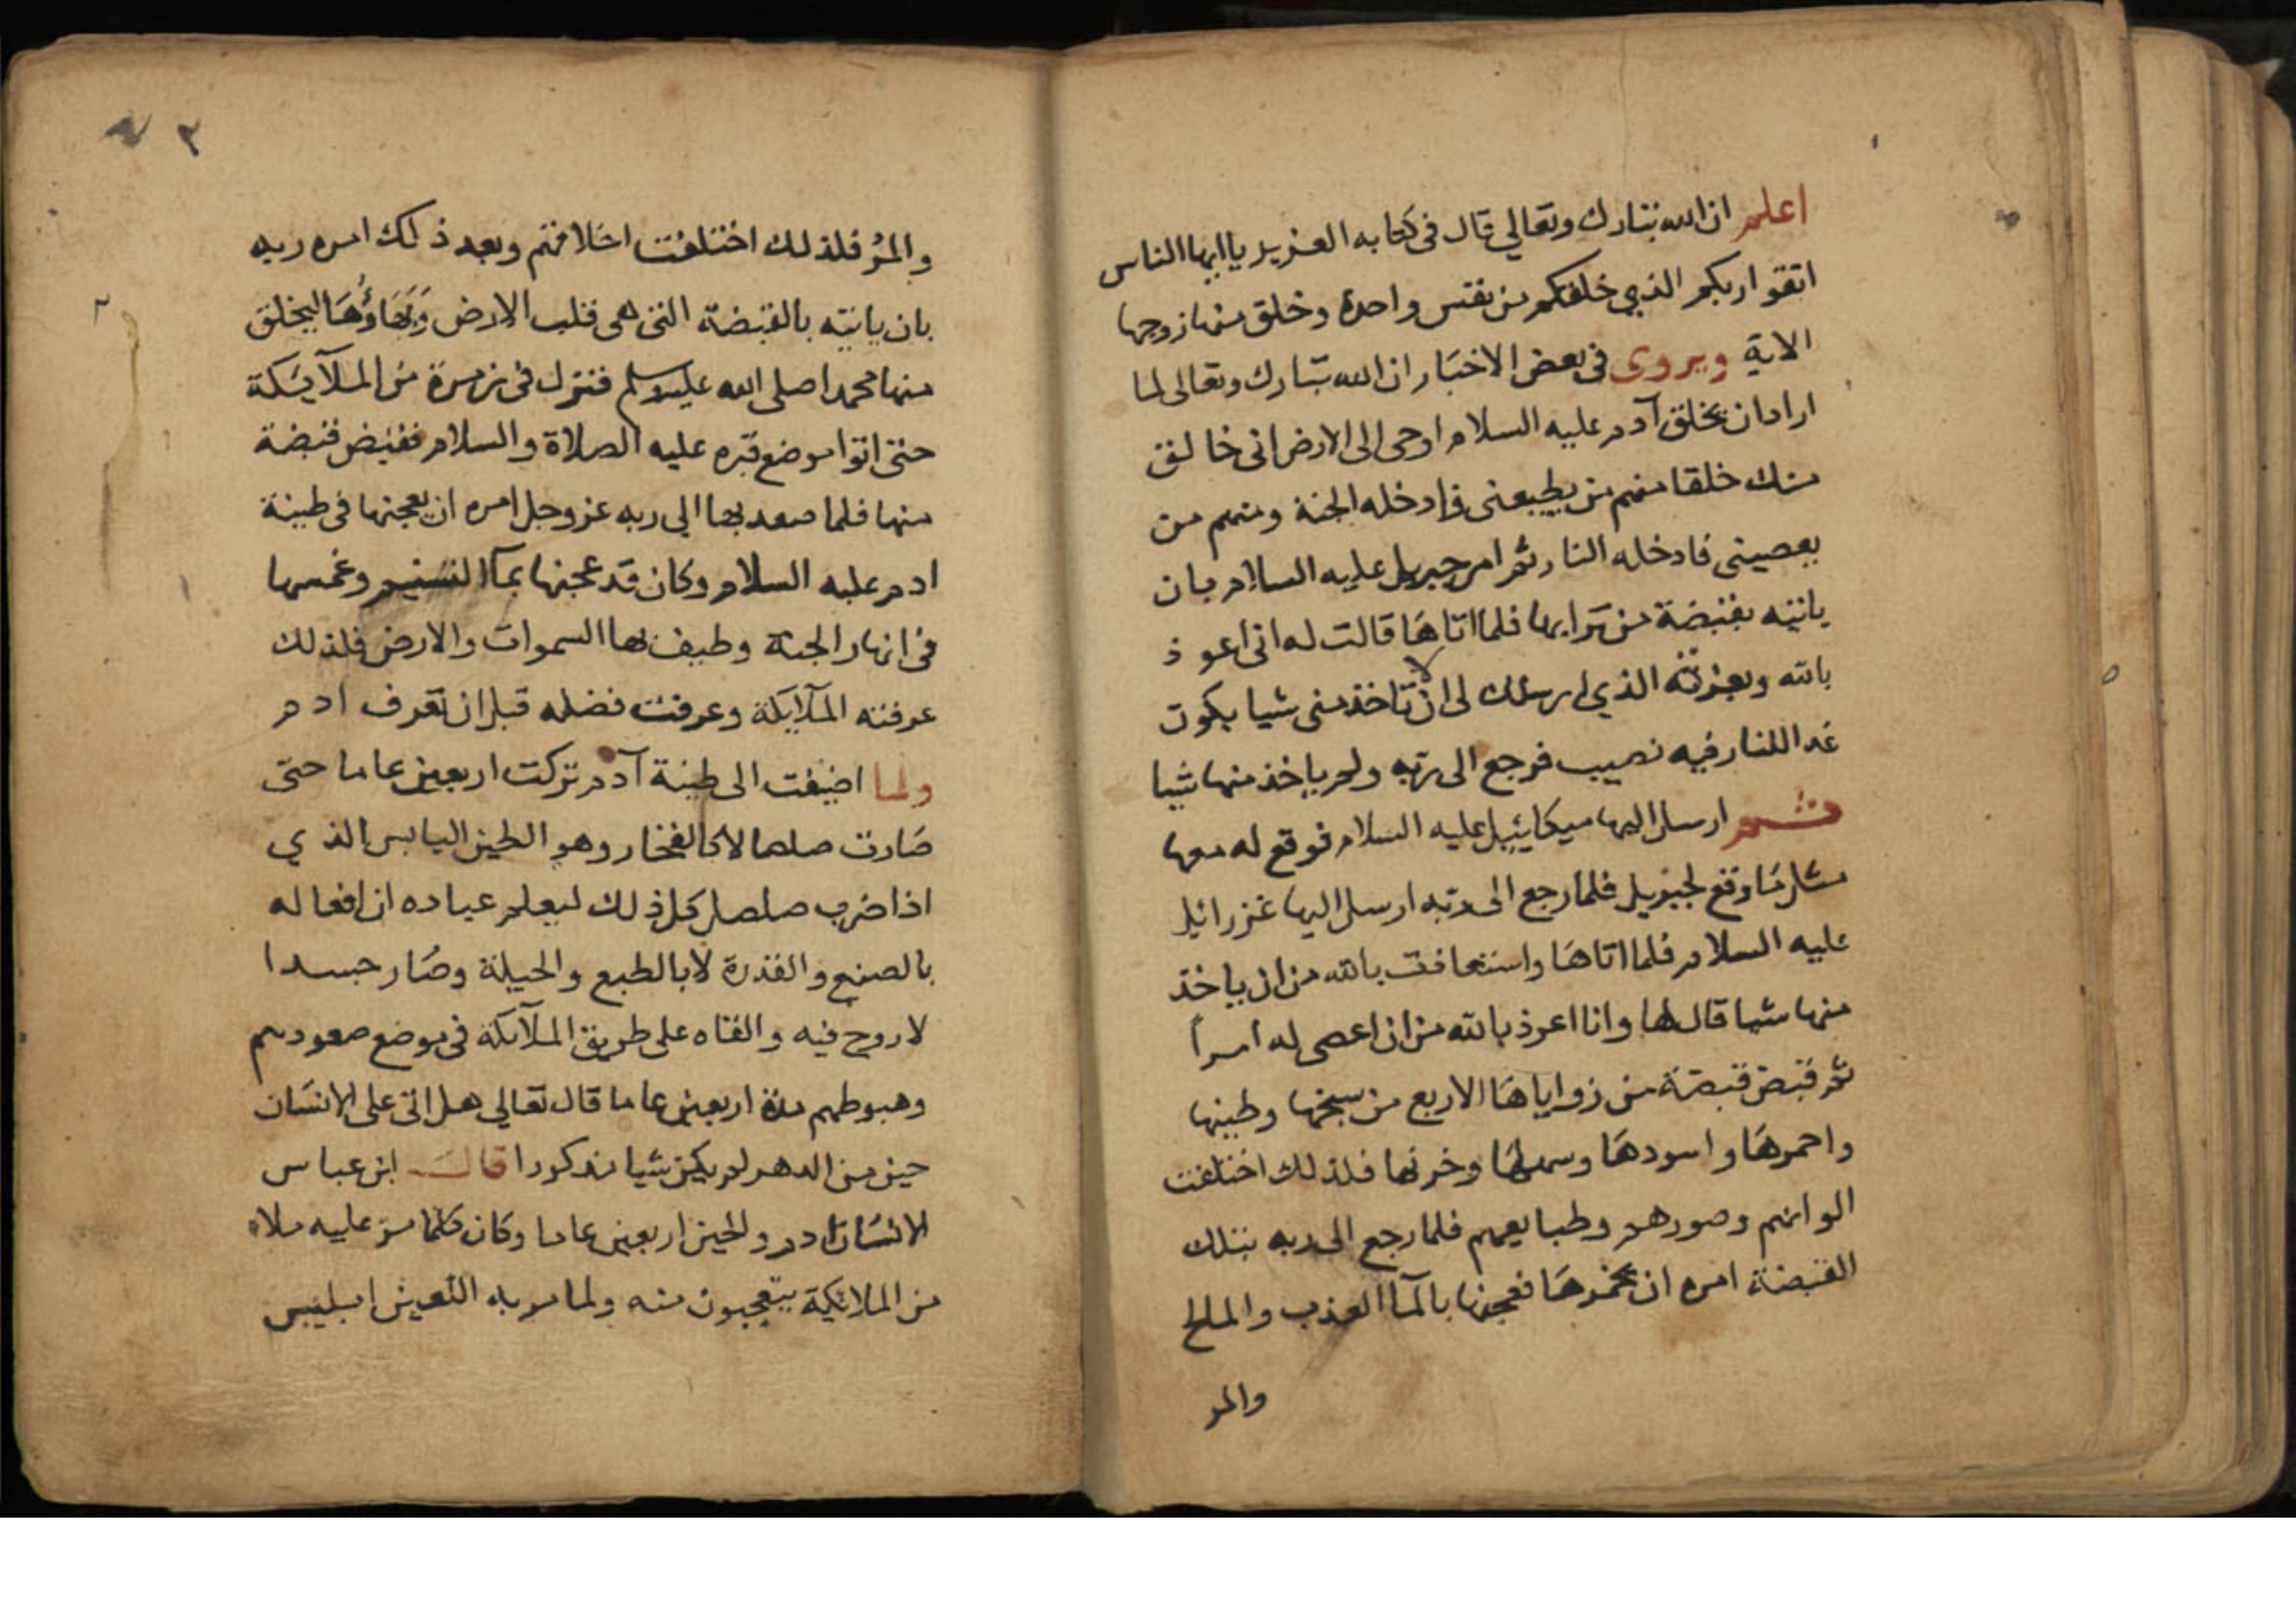 اعلم ان الله تبارك وتعالي قال في كتابه العزيز يا ايها الناس
اتقوا ربكم الذي خلقكم من نفس واحدة وخلق منها زوجها
الاية ويروى في بعض الاخبار ان الله تبارك وتعالى لما
اراد ان يخلق آدم عليه السلام اوحى الى الارض انى خالق
منك خلقا منهم من يطيعنى فادخله الجنة ومنهم من
يعصينى فادخله النار ثم امر جبريل عليه السلام بان
ياتيه بقبضة من ترابها فلما اتاها قالت له انى اعوذ
بالله وبعزته الذي ارسلك لى ان لا تاخذ منى شيا يكون
غدا للنار فيه نصيب فرجع الى ربه ولم ياخذ منها شيا
ثم ارسل اليها ميكاييل عليه السلام فوقع له معها
مثل ما وقع لجبريل فلما رجع الى ربه ارسل اليها عزرائيل
عليه السلام فلما اتاها واستعاذت بالله من ان ياخذ
منها شيا قال لها وانا اعوذ بالله من ان اعصى له امراً
ثم قبض قبضة من زواياها الاربع من سبخها وطينها
واحمرها واسودها وسهلها وحزنها فلذلك اختلفت
الوانهم وصورهم وطبايعهم فلما رجع الى ربه بتلك
القبضة امره ان يخمرها فعجنها بالمآ العذب والملح
والمر
٣
والمرُ فلذلك اختلفت اخلاقهم وبعد ذلك امره ربه
بان ياتيه بالقبضة التى هى قلب الارض وَبَهَاؤُهَا ليخلق
منها محمدا صلى الله عليه وسلم فنزل فى زمرة من الملآيكة
حتى اتوا موضع قبره عليه الصلاة والسلام فقبض قبضة
منها فلما صعد بها الي ربه عز وجل امره ان يعجنها فى طينة
ادم عليه السلام وكان قد عجنها بمآ التسنيم وغمسها
فى انهار الجنة وطيف بها السموات والارض فلذلك
عرفته الملآيكة وعرفت فضله قبل ان تعرف ادم
ولما اضيفت الى طينة آدم تركت اربعين عاما حتى
صارت صلصالا كالفخار وهو الطين اليابس الذي
اذا ضرب صلصل كل ذلك ليعلم عباده ان افعاله
بالصنع والقدرة لا بالطبع والحيلة وصار جسدا
لا روح فيه والقاه على طريق الملآيكة فى موضع صعودهم
وهبوطهم مدة اربعين عاما قال تعالي هل اتى على الانسان
حين من الدهر لم يكن شيا مذكورا قال ابن عباس
الانسان ادم والحين اربعين عاما وكان كلما مر عليه ملاء
من الملائكة يتعجبون منه ولما مر به اللعين ابليس